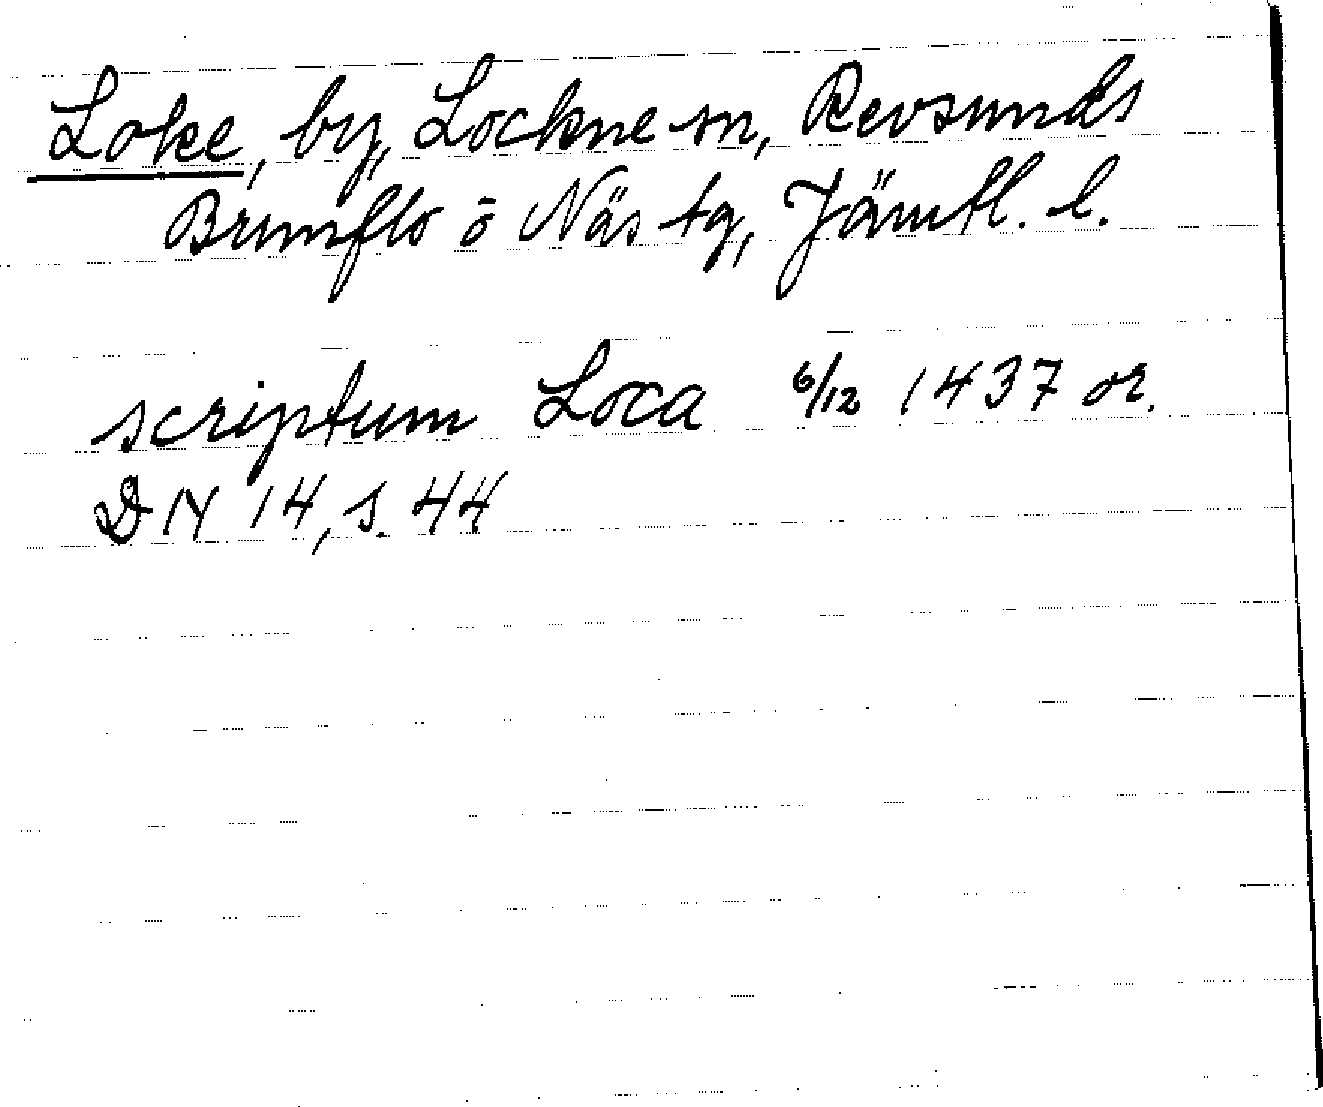 Loke, by, Lockne sn, Revsunds
Brunflo o Näs tg, Jämtl. l.
scriptum Loca 6/12 1437 or.
DN 14, s. 44